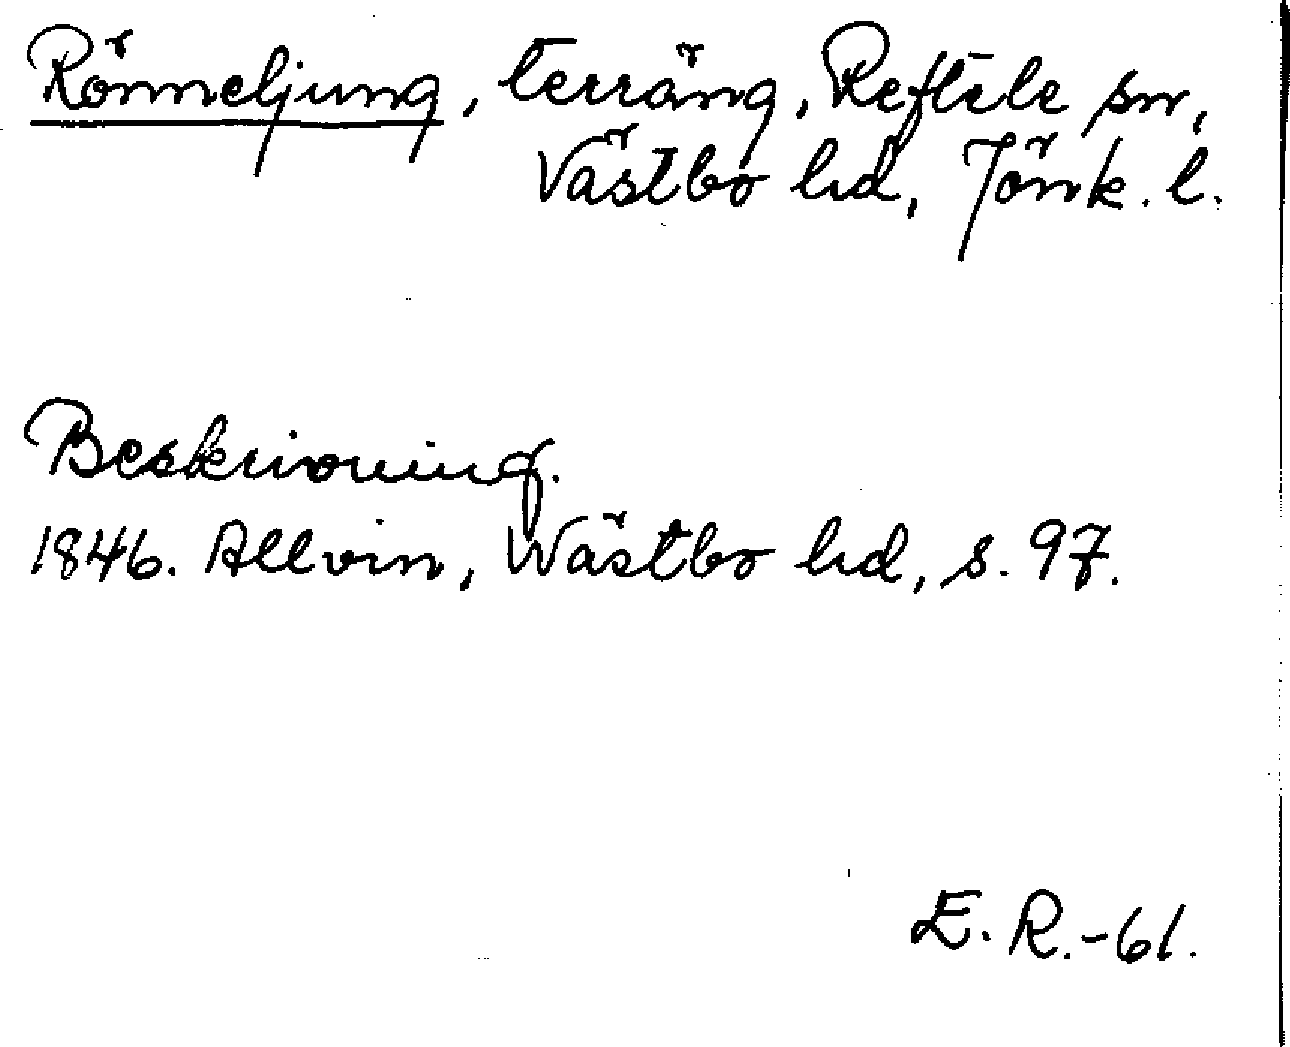 Rönneljung, terräng, Reftele sn,
Västbo hd, Jönk. l.
Beskrivning.
1846. Allvin, Wästbo hd, s. 97.
E. R. -61.